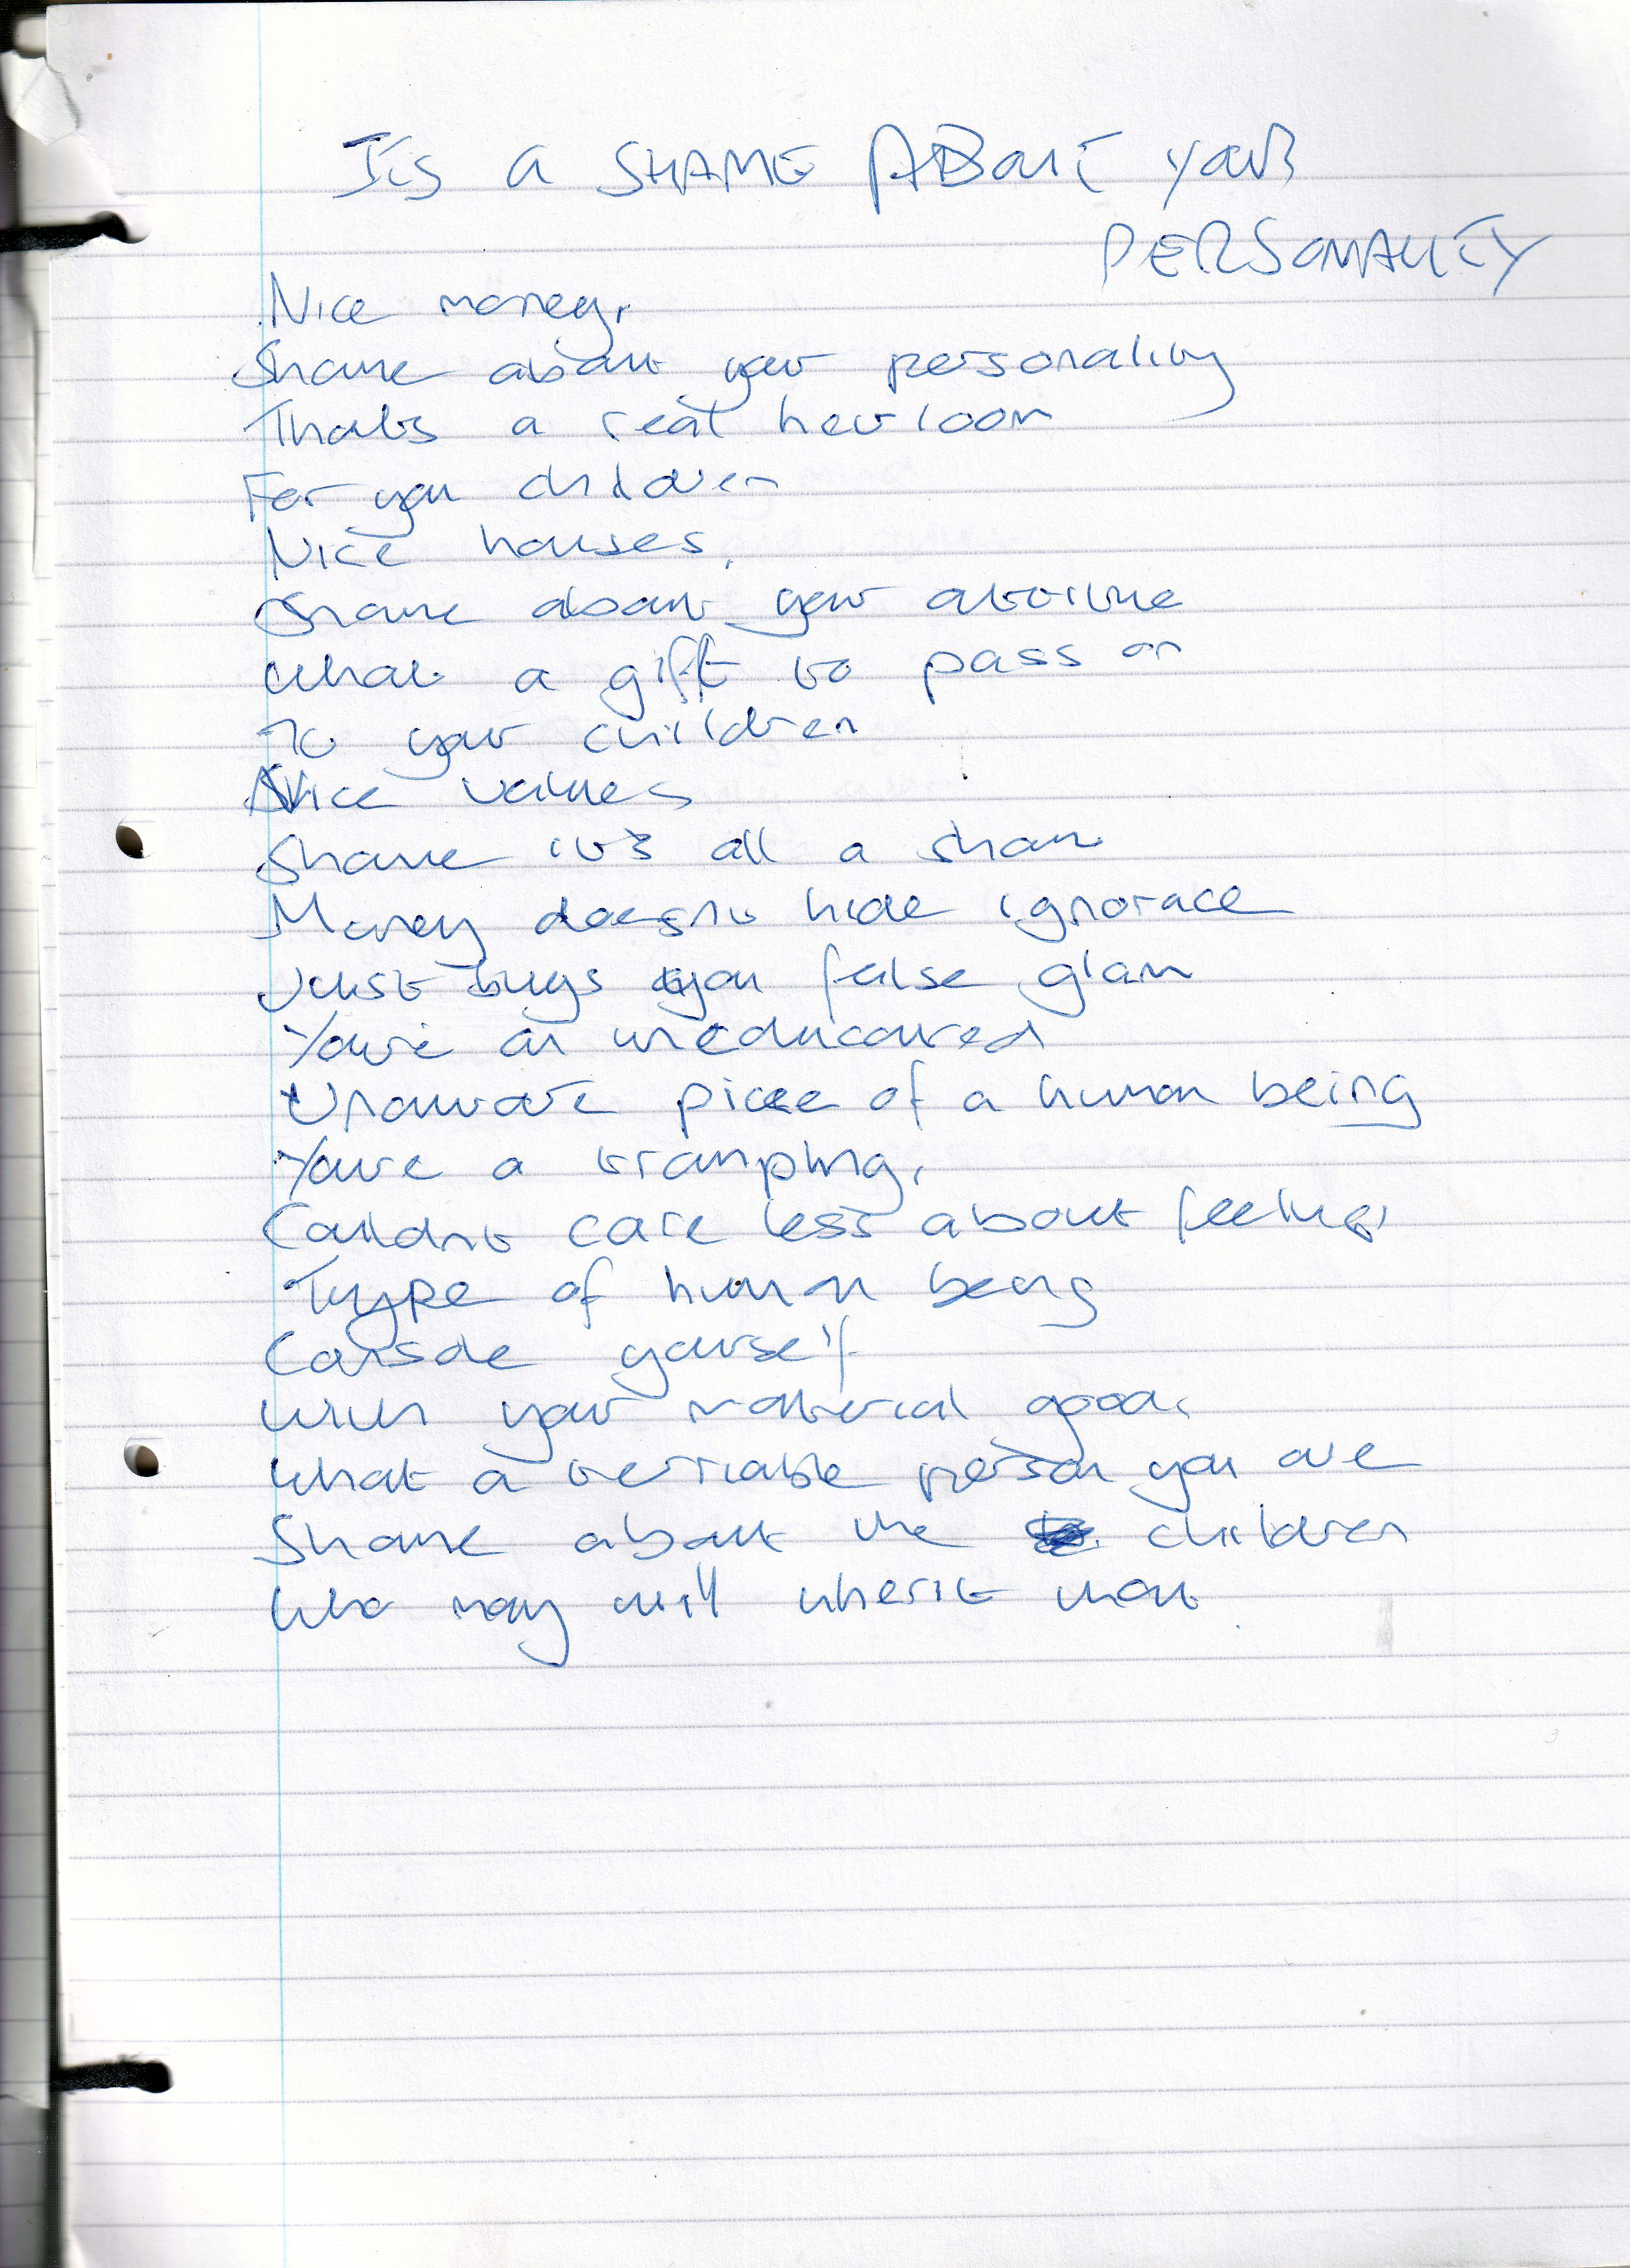 It's a SHAME ABOUT YOUR
PERSONALITY
Nice money,
Shame about your personality
Thats a real heirloom
For you children
Nice houses,
Shame about your attitude
What a gift to pass on
To your children
Nice values
Shame it's all a sham
Money doesnt hide ignorace
Just buys you false glam
You're an uneducated
Unaware piece of a human being
You're a trampling,
Couldnt care less about feelings
Type of human being
Console yourself
With your material goods
What a terriable person you are
Shame about the children
Who may will inherit that